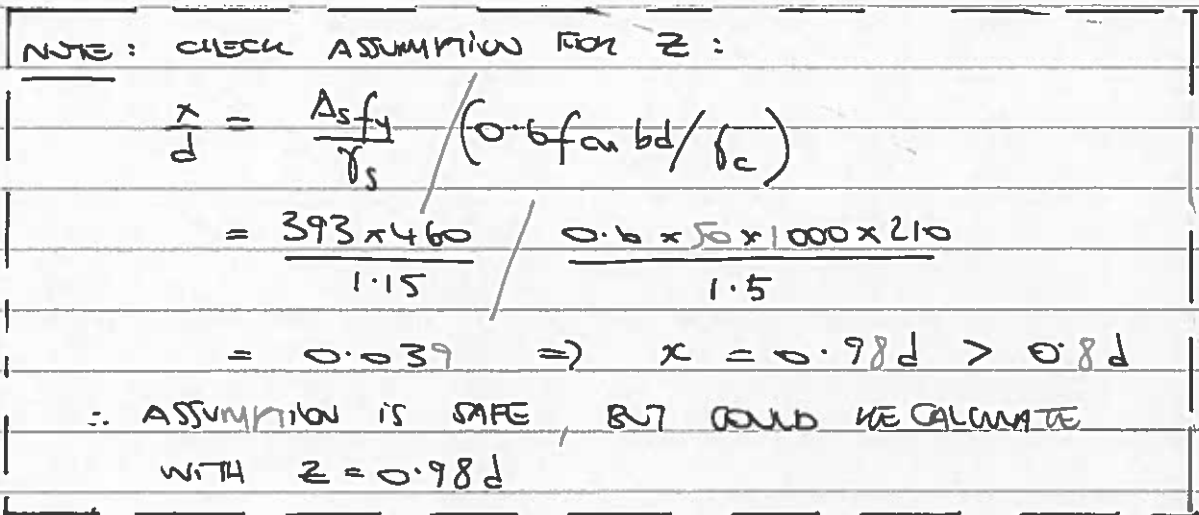 NOTE: CHECK ASSUMPTION FOR Z:
x/d = Asfy/γs / (0.6fcu bd/γc)
= 393×460/1.15 / 0.6×50×1000×210/1.5
= 0.039 => x = 0.98d > 0.8d
∴ ASSUMPTION IS SAFE, BUT COULD RECALCULATE
WITH Z = 0.98d